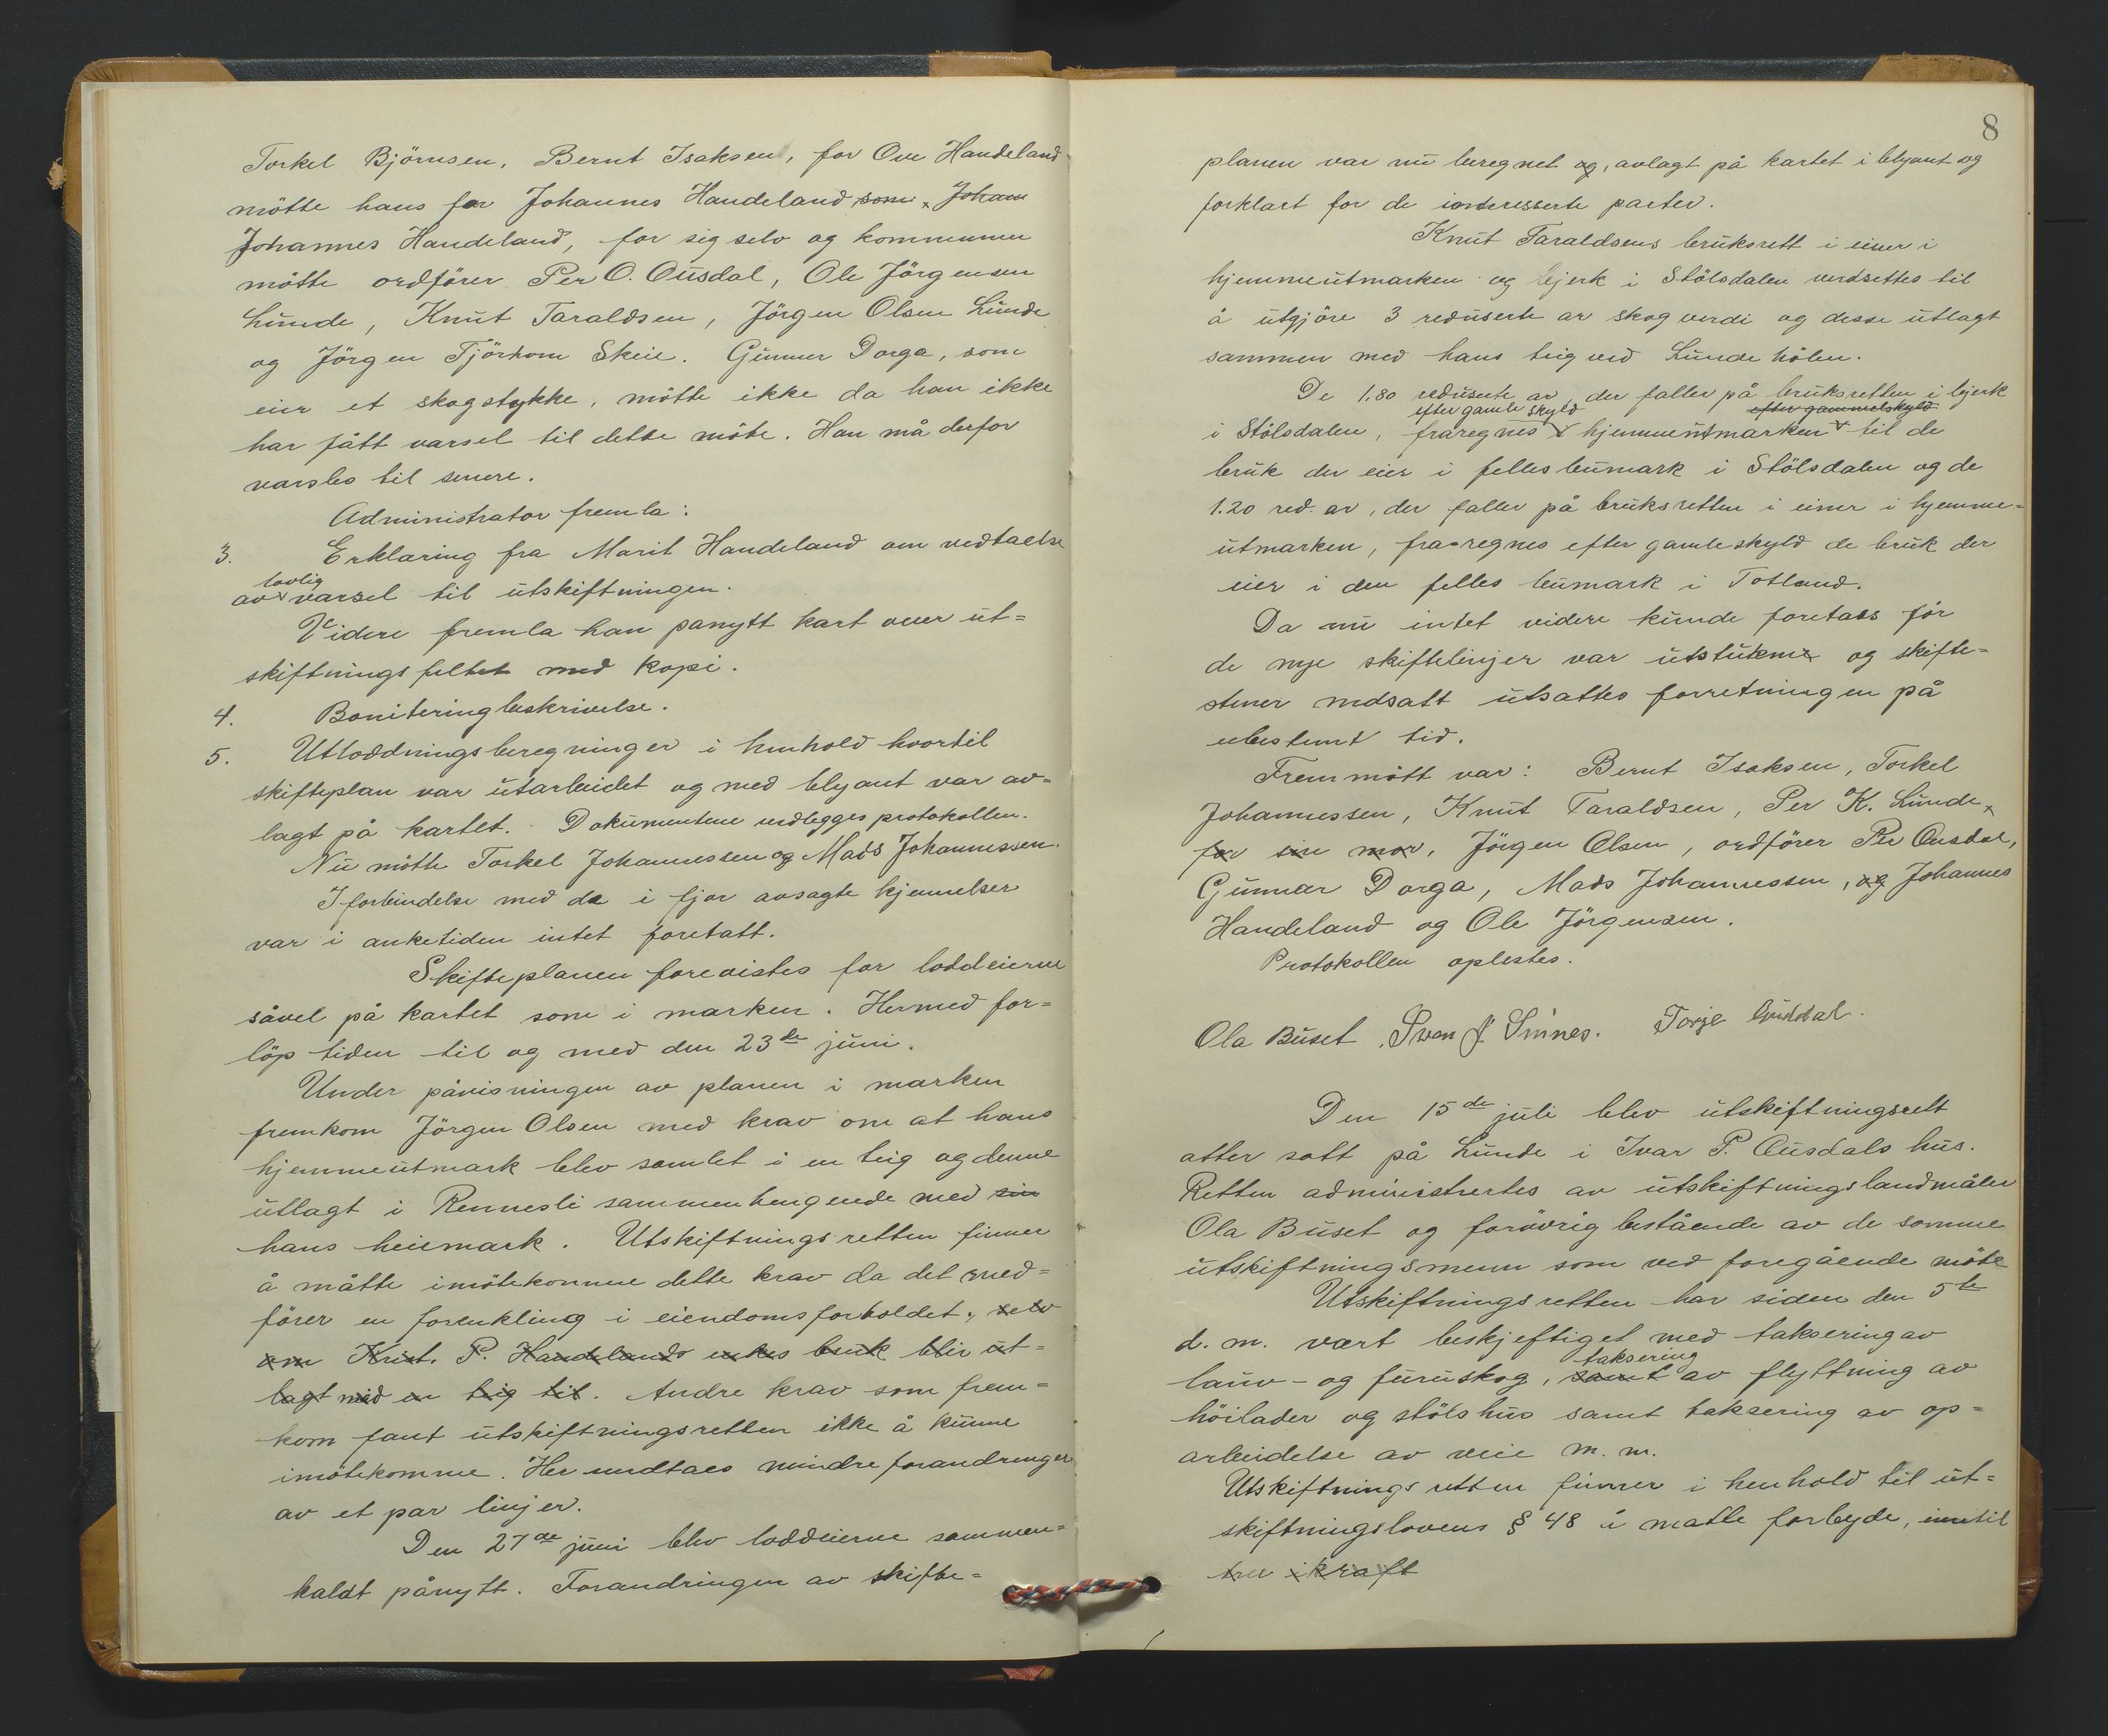 Torkel Björnsen, Bernt Isaksen, for Ove Handeland
mötte hans far Johannes Handeland som, Johann
Johannes Handeland, for sig selv og kommunen
mötte ordförer Per O. Ousdal, Ole Jörgensen
Lunde, Knut Taraldsen, Jörgen Olsen Lunde
og Jörgen Tjörhom Skeie. Gunnar Dorga, som
eier et skogstykke, mötte ikke da han ikke
har fått varsel til dette möte. Han må derfor
varsles til senere.
Administrator fremla:
3. Erklaring fra Marit Handeland om vedtaelse
lovlig
av varsel til utskiftningen.
Videre fremla han panytt kart over ut=
skiftningsfeltet med kopi.
4. Bonitering beskrivelse.
5. Utloddningsberegninger i henhold hvortil
skifteplan var utarbeidet og med blyant var av=
lagt på kartet. Dokumentene vedlegges protokollen.
Nu mötte Torkel Johannessen og Mads Johannessen.
I forbindelse med de i fjor avsagte kjennelser
var i anketiden intet foretatt.
Skifteplanen forevistes for loddeierne
såvel på kartet som i marken. Hermed for=
löp tiden til og med den 23de juni.
Under påvisningen av planen i marken
fremkom Jörgen Olsen med krav om at hans
hjemmeutmark blev samlet i en teig og denne
utlagt i Rennesli sammenhengende med sin
hans heiemark. Utskiftningsretten finner
å måtte imötekomme dette krav da det med=
förer en forenkling i eiendomsforholdet, selv
om Krist. P. Handelands enkes bruk blir ut=
lagt med en teig til. Andre krav som frem=
kom fant utskiftningsretten ikke å kunne
imötekomme. Her undtaes mindre forandringer
av et par linjer.
Den 27de juni blev loddeierne sammen=
kaldt pånytt. Forandringen av skifte=
8
planen var nu beregnet og, avlagt på kartet i blyant og
forklart for de interesserte parter.
Knut Taraldsens bruksrett i einer i
hjemmeutmarken og bjerk i Stölsdalen verdsettes til
å utgjöre 3 reduserte ar skogverdi og desse utlagt
sammen med hans teig ved Lunde hölen.
De 1.80 reduserte ar, der faller på bruksretten i bjerk
efter gamle skyld efter gammelskyld
i Stölsdalen, fraregnes i hjemmeutmarken til de
bruk der eier i felles beumark i Stölsdalen og de
1.20 red. ar, der faller på bruksretten i einer i hjemme=
utmarken, fra-regnes efter gamleskyld de bruk der
eier i den felles beumark i Totland.
Da nu intet videre kunde foretaes för
de nye skiftelinjer var utstukne og skifte=
stener nedsatt utsattes forretningen på
ubestemt tid.
Fremmött var: Bernt Isaksen, Torkel
Johannessen, Knut Taraldsen, Per K. Lunde,
for sin mor, Jörgen Olsen, ordförer Per Ousdal,
Gunnar Dorga, Mads Johannessen, og Johannes
Handeland og Ole Jörgensen.
Protokollen oplestes.
Ola Buset, Sven J. Sinnes. Torje Guddal.
Den 15de juli blev utskiftningsrett
atter satt på Lunde i Ivar P. Ousdals hus.
Retten administrertes av utskiftningslandmåler
Ola Buset og forövrig bestående av de somme
utskiftningsmenn som ved foregående möte
Utskiftningsretten har siden den 5te
d. m. vært beskjeftiget med taksering av
taksering
lauv- og furuskog, samt av flyttning av
höilader og stölshus samt taksering av op=
arbeidelse av veie m. m.
Utskiftningsretten finner i henhold til ut=
skiftningslovens § 48 å matte forbyde, inntil
trer i kraft